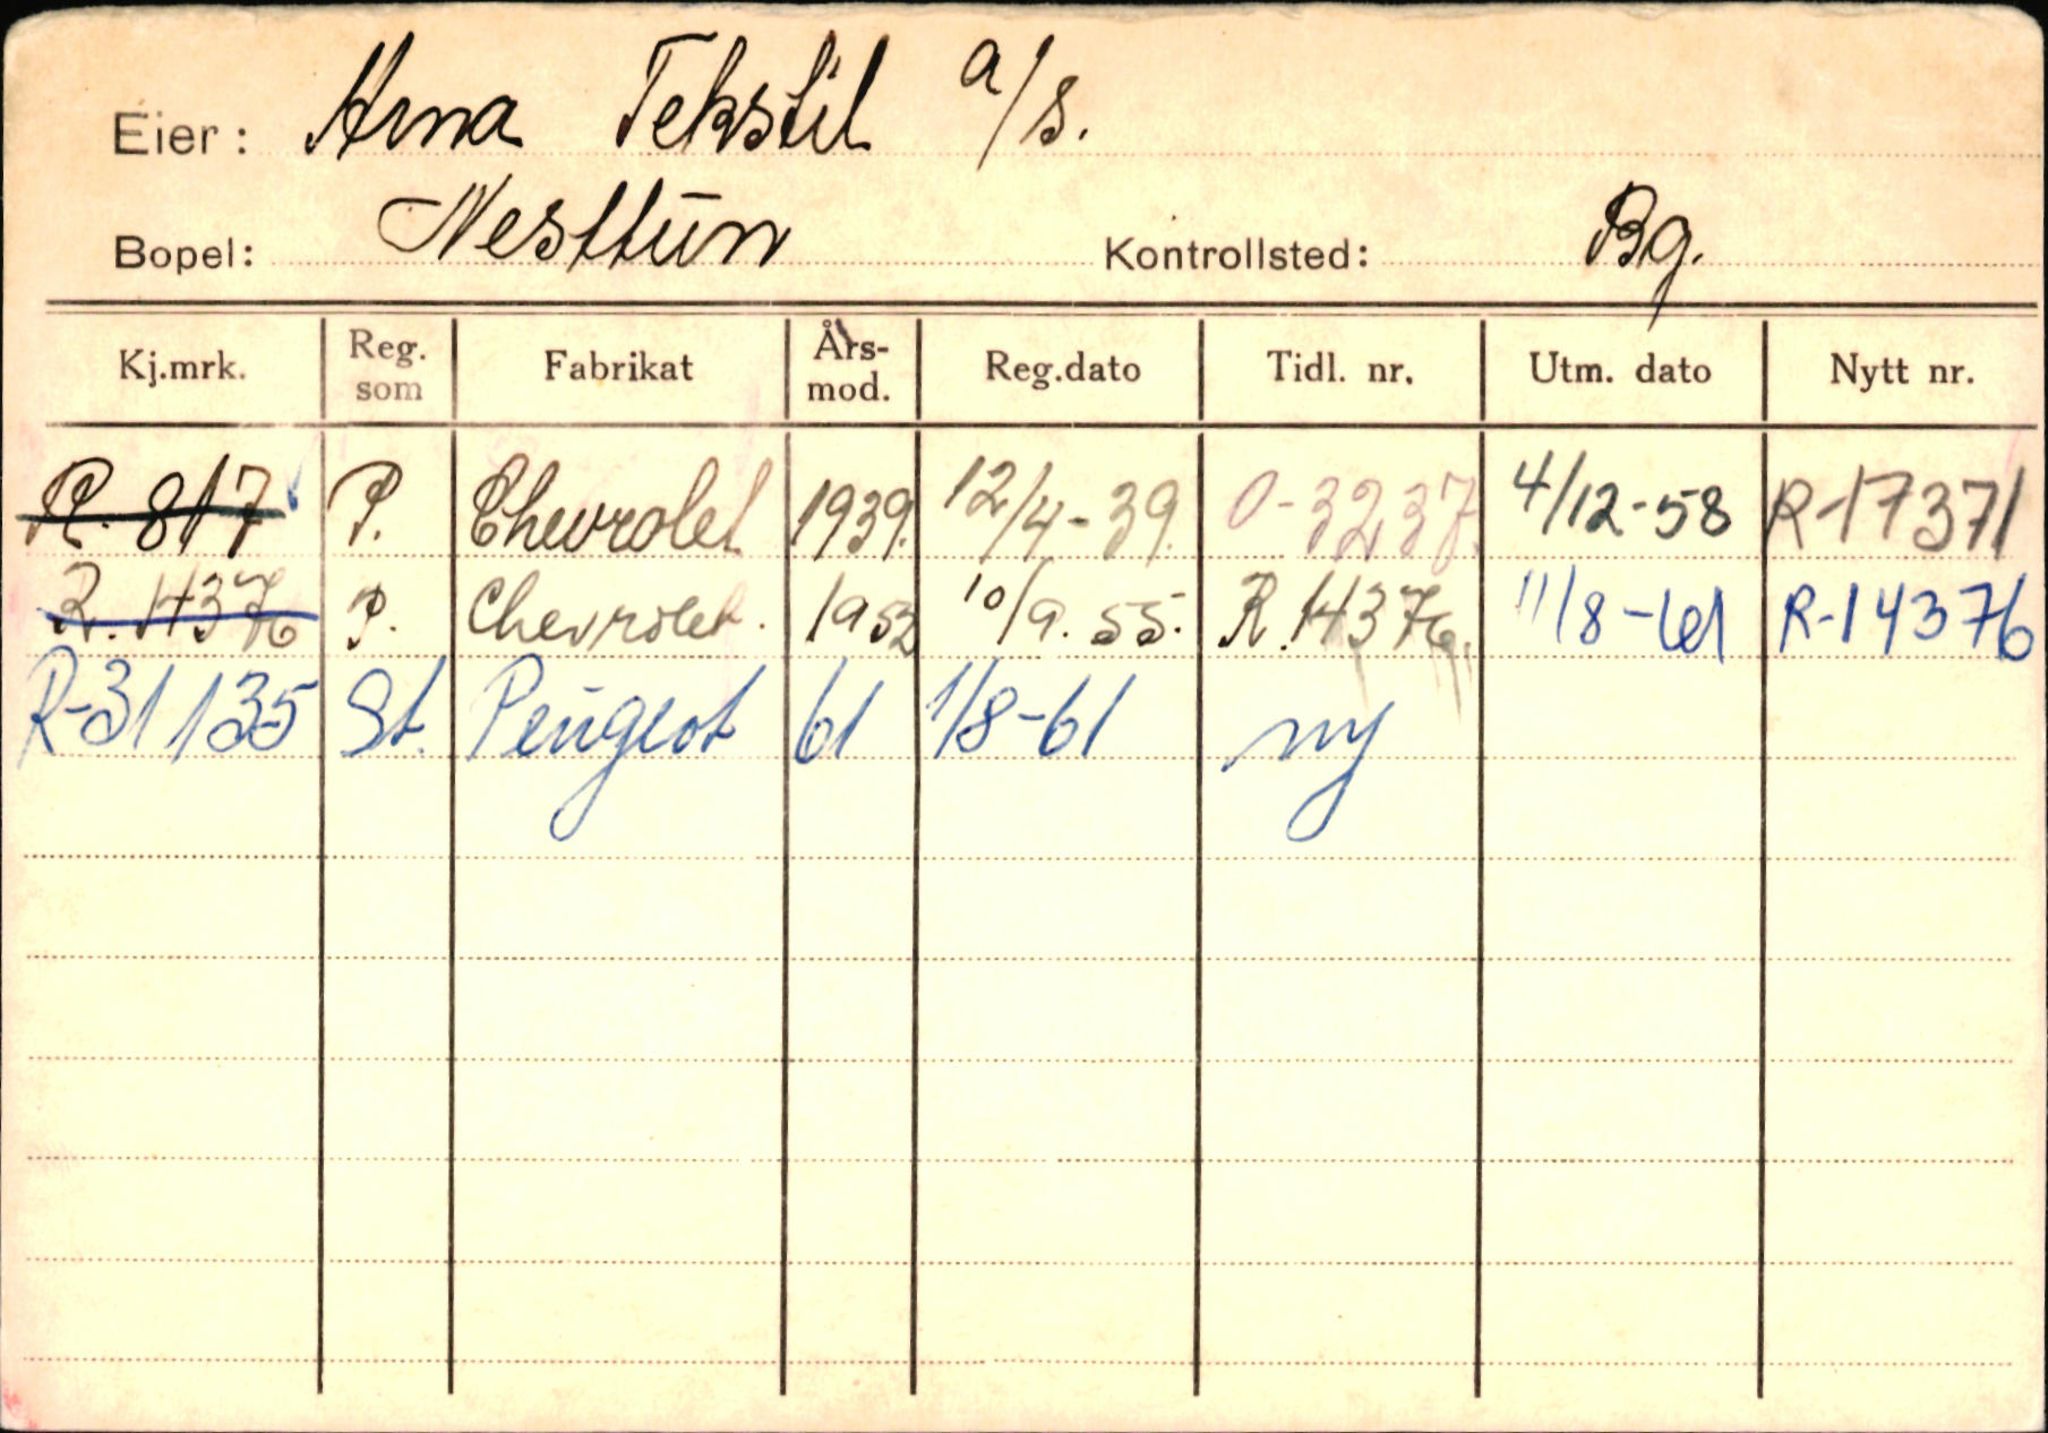 Eier: Arna Tekstil a/s.
Bopel: Nesttun Kontrollsted: Bg.
Kj.mrk. Reg. som Fabrikat Års-mod. Reg.dato Tidl. nr. Utm. dato Nytt nr.
R. 817 P. Chevrolet 1939. 12/4-39. O-3237. 4/12-58 R-17371
R. 14376 P. Chevrolet. 1952 10/9.55. R.14376. 11/8-61 R-14376
R-31135 St. Peugeot 61 1/8-61 ny